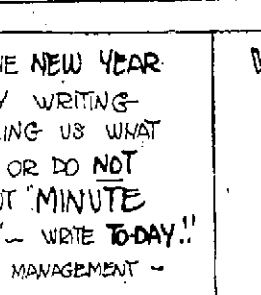 NE NEW YEAR
Y WRITING
ING US WHAT
OR DO NOT
UT "MINUTE
"~ WRITE TO-DAY!!
MANAGEMENT ~